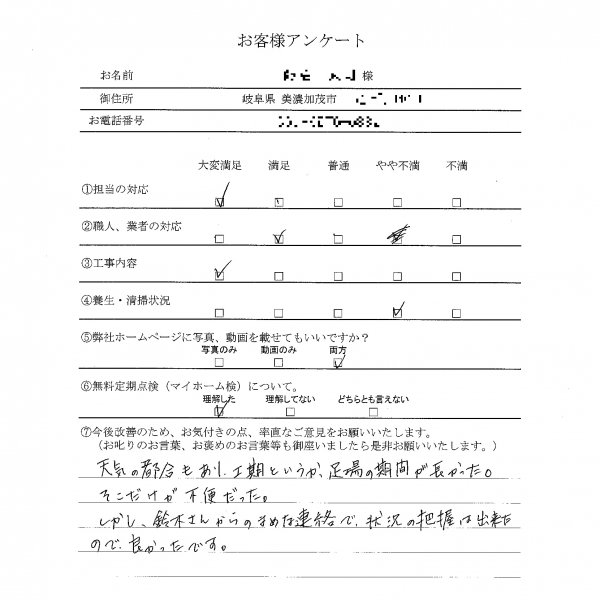 お客様アンケート
お名前 様
御住所 岐阜県 美濃加茂市
お電話番号
大変満足 満足 普通 やや不満 不満
①担当の対応
②職人、業者の対応
③工事内容
④養生・清掃状況
⑤弊社ホームページに写真、動画を載せてもいいですか?
写真のみ 動画のみ 両方
⑥無料定期点検(マイホーム検)について。
理解した 理解してない どちらとも言えない
⑦今後改善のため、お気付きの点、率直なご意見をお願いいたします。
(お叱りのお言葉、お褒めのお言葉等も御座いましたら是非お願いいたします。)
天気の都合もあり、工期というか、足場の期間が長かった。
そこだけが不便だった。
しかし、鈴木さんからのまめな連絡で、状況の把握は出来た
ので、良かったです。